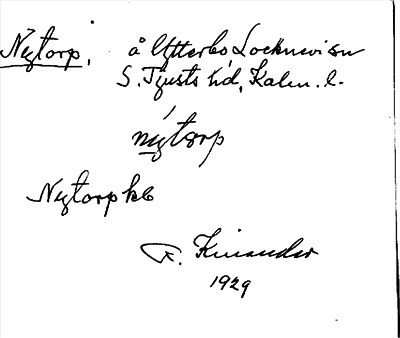 Nytorp, å Ytterbo Locknevi sn
S. Tjusts hd, Kalm. l.
nýtorp
Nytorp kb
F. Kinander
1929